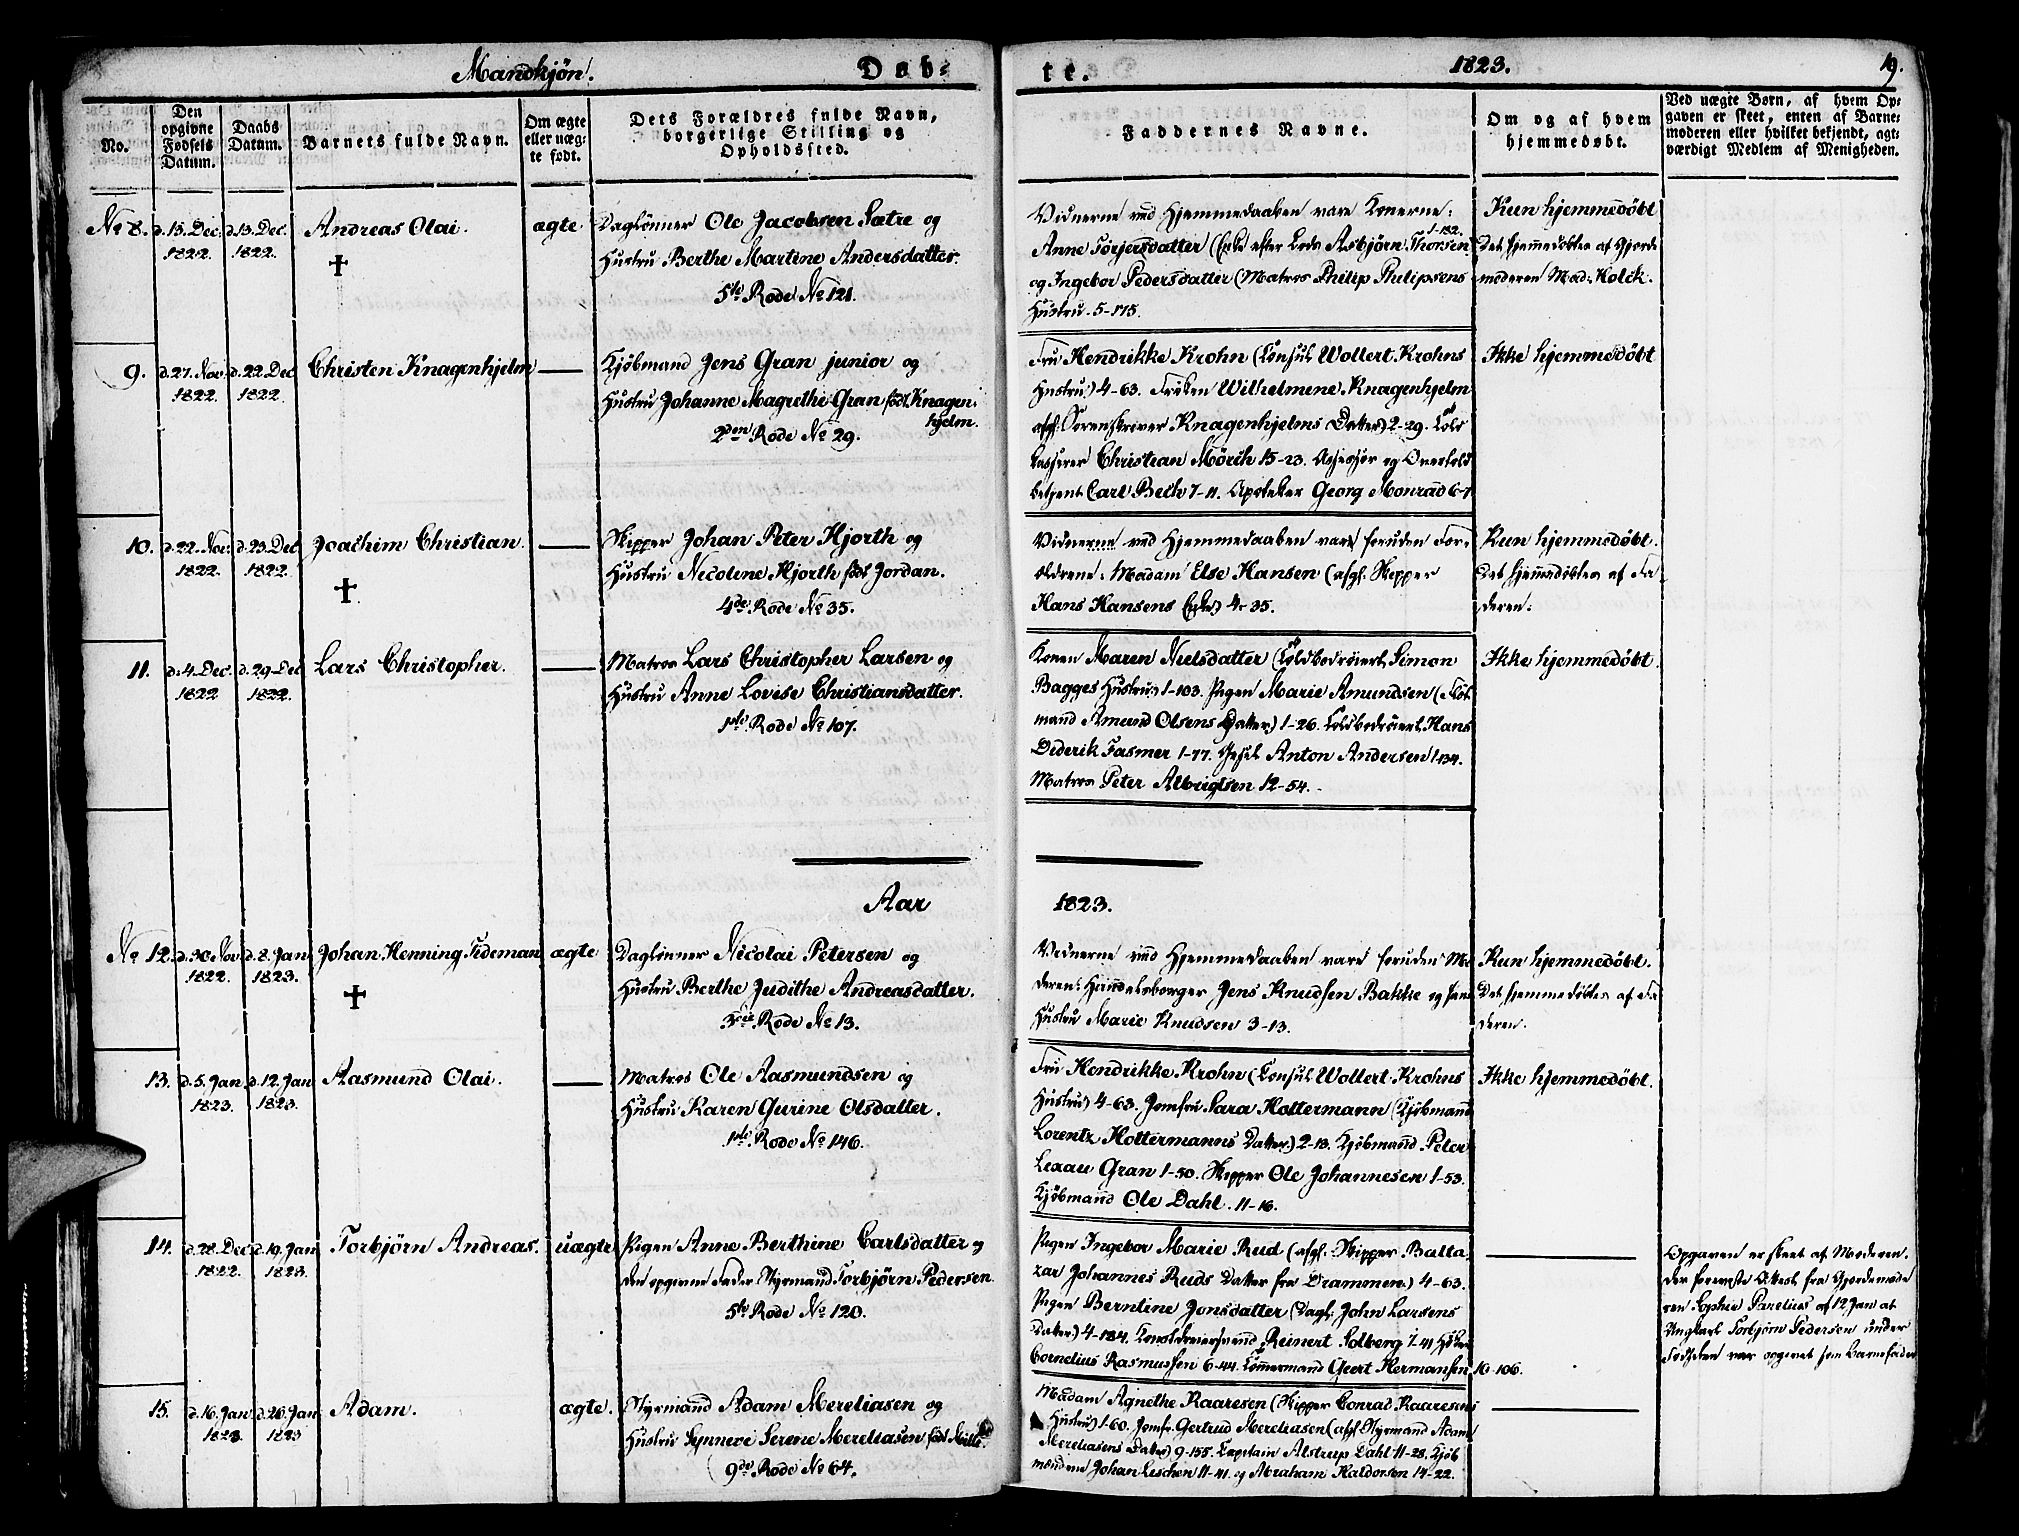 Mandkjön. Døb-
No.
Den opgivne Fødsels Datum.
Daabs Datum.
Barnets fulde Navn.
Om ægte eller uægte født.
Dets Forældres fulde Navn, borgerlige Stilling og Opholdssted.
No 8. d. 13. Dec. d. 13. Dec. Andreas Olai. ægte Daglönner Ole Jacobsen Sætre og
1822. 1822. † Hustru Berthe Martine Andersdatter.
5te Rode No 121.
9. d. 27. Nov. d. 22. Dec Christen Knagenhjelm — Kjöbmand Jens Gran junior og
1822. 1822. Hustru Johanne Magrethe Gran född Knagen-
hjelm.
2den Rode No 29.
10. d. 22. Nov: d. 23. Dec Joachim Christian. — Skipper Johan Peter Hjorth og
1822. 1822. † Hustru Nicoline Hjorth född Jordan.
4de Rode No 35.
11. d. 4. Dec. d. 29. Dec Lars Christopher. — Matros Lars Christopher Larsen og
1822 1822. Hustru Anne Lovise Christiansdatter.
1ste Rode No 107.
Aar
No 12. d. 30. Nov d. 8. Jan Johan Henning Tideman ægte Daglönner Nicolai Petersen og
1822. 1823. † Hustru Berthe Judithe Andreasdatter.
3die Rode No 13.
13. d. 5. Jan d. 12. Jan Aasmund Olai. — Matros Ole Aasmundsen og
1823. 1823. Hustru Karen Gurine Olsdatter.
1ste Rode No 146.
14. d. 28. Dec d. 19. Jan Torbjörn Andreas. uægte Pigen Anne Berthine Carlsdatter og
1822. 1823. den opgivne Fader Styrmand Torbjörn Pedersen
5te Rode No 120.
15. d. 16. Jan d. 26. Jan Adam. ægte. Styrmand Adam Mereliasen og
1823. 1823 Hustru Synneve Serene Mereliasen född
9de Rode No 64.
te. 1823. 19.
Faddernes Navne.
Om og af hvem hjemmedøbt.
Ved uægte Børn, af hvem Opgaven er skeet, enten af Barnemoderen eller hvilket bekjendt, agtværdigt Medlem af Menigheden.
Vidnerne ved Hjemmedaaben vare Konerne: Kun hjemmedöbt
1-182.
Anne Torjersdatter (Enke efter Asbjörn Thorsen Det hjemmedöbtes af Gjorde
og Ingebor Pedersdatter (Matros Philip Philipsens moderen Mad: Holck.
Hustru. 5-175.
Fru Hendrikke Krohn (Consul Wollert Krohns Ikke hjemmedöbt
Hustru) 4-63. Fröken Wilhelmene Knagenhjelm
afg: Sorenskriver Knagenhjelms Datter) 2-29. Told
kasserer Christian Mörch 15-23. Assessor og Overtold
betjent Carl Bech 7-11. Apotheker Georg Monrad 6-1
Vidnerne ved Hjemmedaaben vare foruden For- Kun hjemmedöbt.
ældrene: Madam Else Hansen (afg: Skipper Det hjemmedöbtes af Fa
Hans Hansens Enke) 4-35. deren.
Konen Maren Nielsdatter Simon Ikke hjemmedöbt.
Bagges Hustru) 1-103. Pigen Marie Amundsen
mand Amund Olsens Datter) 1-26. Hans
Diderik Fasmer 1-77. Anton Andersen 1-134.
Matros Peter Albrigtsen 12-54.
1823.
Vidnerne ved Hjemmedaaben vare foruden Mo Kun hjemmedöbt.
deren: Handelsborger Jens Knudsen Bakke og hans Det hjemmedöbtes af Fa
Hustru Marie Knudsen 3-13. deren.
Fru Hendrikke Krohn (Consul Wollert Krohns Ikke hjemmedöbt.
Hustru) 4-63. Jomfru Sara Holtermann (Kjöbmand
Lorentz Holtermanns Datter) 2-13. Kjöbmand Peter
Lexau Gran 1-50. Skipper Ole Johannesen 1-53.
Kjöbmand Ole Dahl. 11-16.
Pigen Ingebor Marie Rud (afg: Skipper Balta — Opgaven er skeet af Moderen.
zar Johannes Ruds Datter fra Drammen.) 4-63. Der foreviste Attest fra Gjordemode
Pigen Berntine Jonsdatter (Dagl. John Larsens ren Sophie Parelius af 12 Jan at
Datter) 4-184. Reinert Solberg 7-41 Ungkarl Torbjörn Pedersen under
Cornelius Rasmussen 6-44. Tömmermand Geert Hermansen 10-106. Fødselen var opgivet som Barnefader
Madam Agnethe Kaaresen (Skipper Conrad Kaaresens —
Hustru) 1-60. Jomfr. Gertrud Mereliasen (afg: Styrmand Adam
Mereliasens Datter) 9-155. Capitain Alstrup Dahl 11-28. Kjöb
mændene Johan Leschen 11-41. og Abraham Haldorsen 14-22.